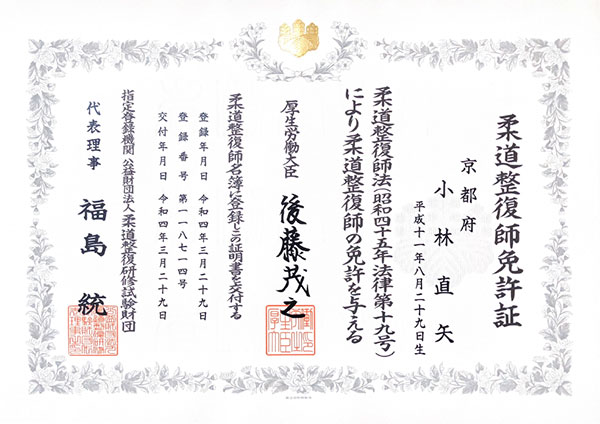 柔道整復師免許証
京都府
小林直矢
平成十一年八月二十九日生
柔道整復師法(昭和四十五年法律第十九号)
により柔道整復師の免許を与える
厚生労働大臣 後藤茂之
柔道整復師名簿に登録しこの証明書を交付する
登録年月日 令和四年三月二十九日
登録番号 第一一八七一四号
交付年月日 令和四年三月二十九日
指定登録機関 公益財団法人柔道整復研修試験財団
代表理事 福島統